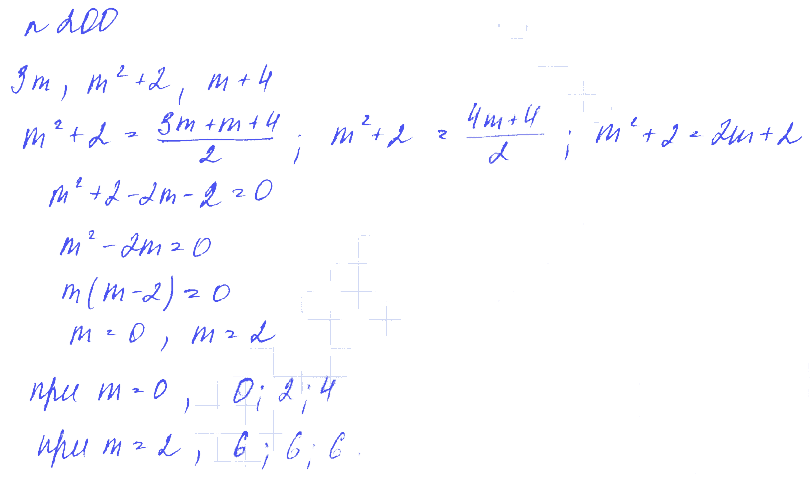 № 200
3m, m² + 2, m + 4
m² + 2 = (3m + m + 4)/2 ; m² + 2 = (4m + 4)/2 ; m² + 2 = 2m + 2
m² + 2 - 2m - 2 = 0
m² - 2m = 0
m(m - 2) = 0
m = 0, m = 2
при m = 0, 0; 2; 4
при m = 2, 6; 6; 6.